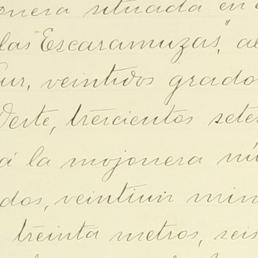 onera situada en e
las "Escaramuzas", al
Sur, veintidos grado
Oeste, trescientos sete
á la mojonera nú
dos, veintiun min
treinta metros, seis